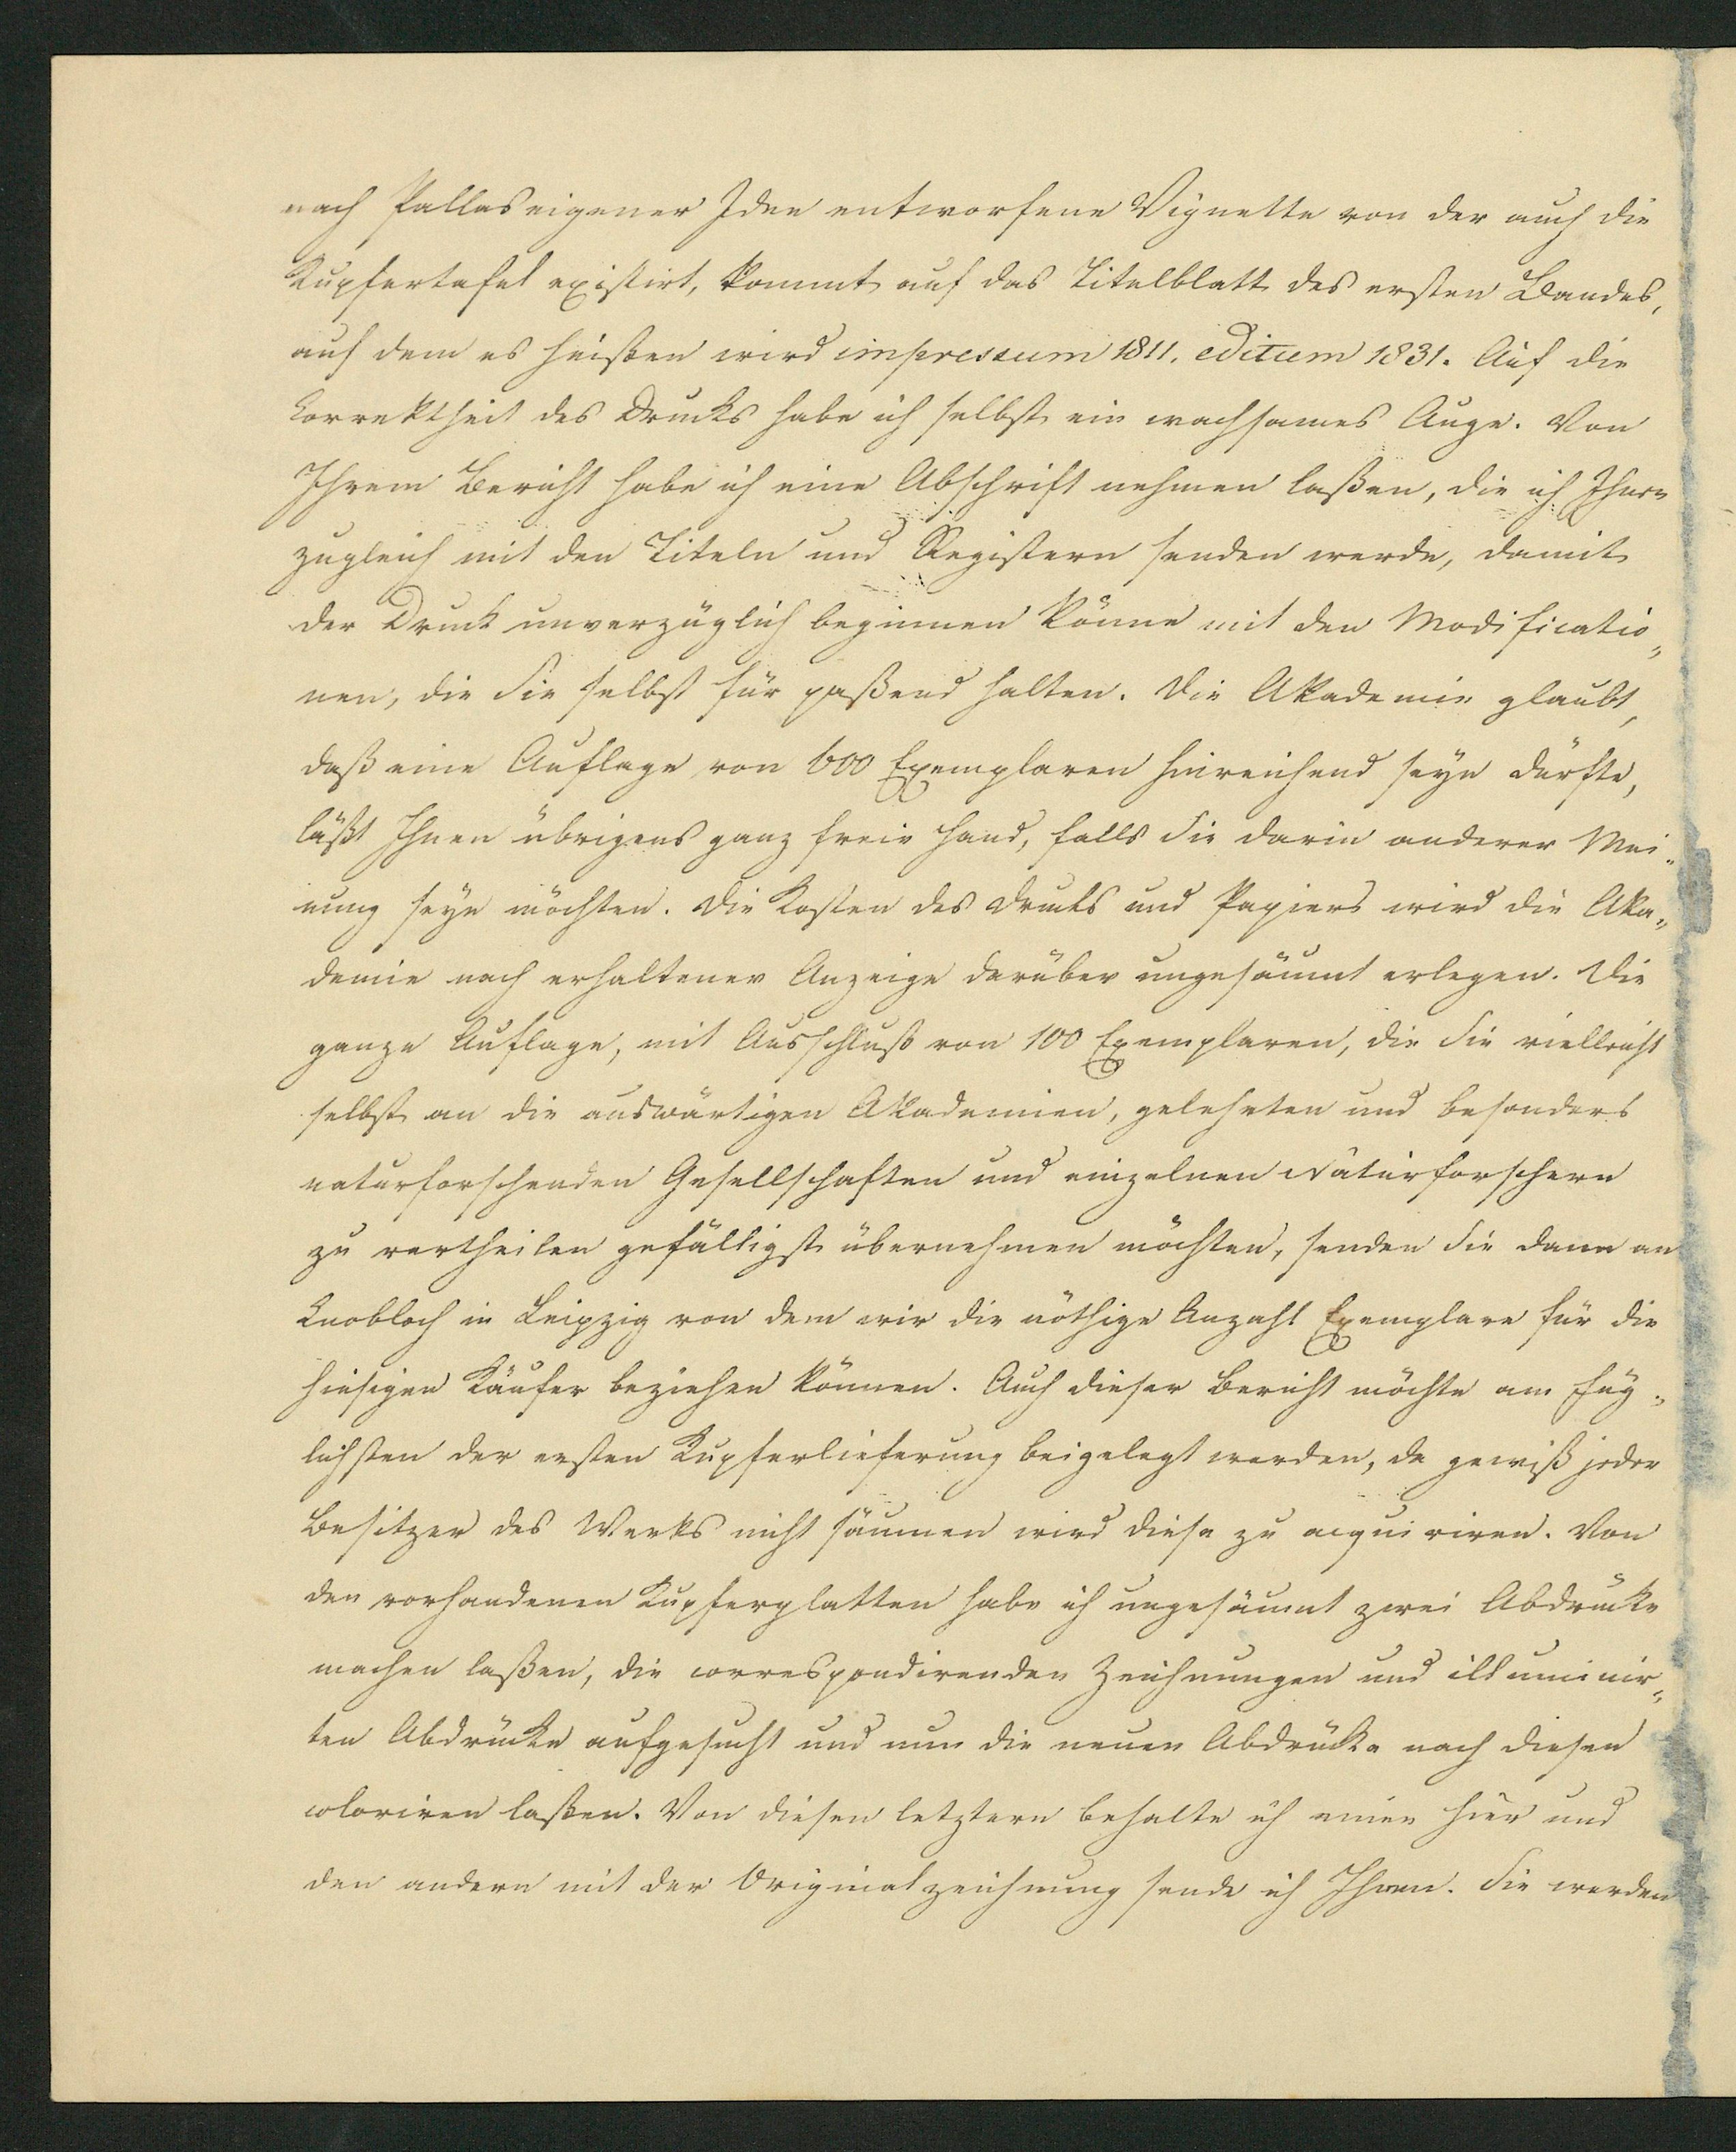 nach Pallas eigener Idee entworfene Vignette von der auch die
Kupfertafel existirt, kommt auf das Titelblatt des ersten Bandes,
auf dem es heißen wird impressum 1811. editum 1831. Auf die
Correktheit des Drucks habe ich selbst ein wachsames Auge. Von
Ihrem Bericht habe ich eine Abschrift nehmen laßen, die ich Ihnen
zugleich mit den Titeln und Registern senden werde, damit
der Druck unverzüglich beginnen könne mit den Modificatio„
nen, die Sie selbst für paßend halten. Die Akademie glaubt,
daß eine Auflage von 600 Exemplaren hinreichend seyn dürfte,
läßt Ihnen übrigens ganz freie Hand, falls Sie darin anderer Mei„
nung seyn möchten. Die Kosten des Drucks und Papiers wird die Aka„
demie nach erhaltener Anzeige darüber ungesäumt erlegen. Die
ganze Auflage, mit Ausschluß von 100 Exemplaren, die Sie vielleicht
selbst an die auswärtigen Akademien, gelehrten und besonders
naturforschenden Gesellschaften und einzelnen Naturforschern
zu vertheilen gefälligst übernehmen möchten, senden Sie dann an
Knobloch in Leipzig von dem wir die nöthige Anzahl Exemplare für die
hiesigen Käufer beziehen können. Auch dieser Bericht möchte am füg„
lichsten der ersten Kupferlieferung beigelegt werden, da gewiß jeder
Besitzer des Werks nicht säumen wird diese zu acquiriren. Von
den vorhandenen Kupferplatten habe ich ungesäumt zwei Abdrücke
machen laßen, die correspondirenden Zeichnungen und illuminir„
ten Abdrücke aufgesucht und nun die neuen Abdrücke nach diesen
coloriren laßen. Von diesen letztern behalte ich einen hier und
den andern mit der Originalzeichnung sende ich Ihnen. Sie werden